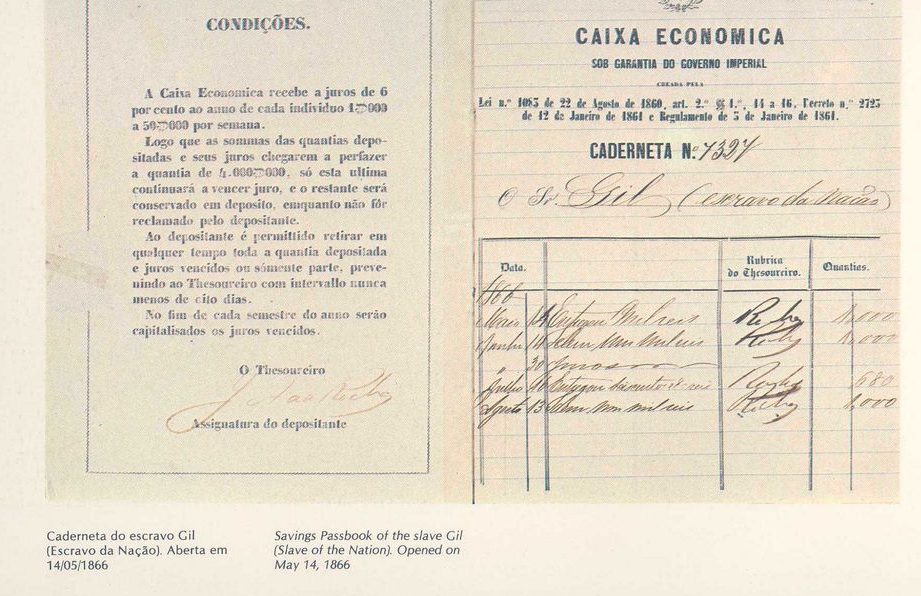 CONDIÇÕES.
A Caixa Economica recebe a juros de 6
por cento ao anno de cada individuo 1$000
a 50$000 por semana.
Logo que as sommas das quantias depo-
sitadas e seus juros chegarem a perfazer
a quantia de 4.000$000, só esta ultima
continuará a vencer juro, e o restante será
conservado em deposito, emquanto não fôr
reclamado pelo depositante.
Ao depositante é permittido retirar em
qualquer tempo toda a quantia depositada
e juros vencidos ou sómente parte, preve-
nindo ao Thesoureiro com intervallo nunca
menos de oito dias.
No fim de cada semestre do anno serão
capitalisados os juros vencidos.
O Thesoureiro
Assignatura do depositante
CAIXA ECONOMICA
SOB GARANTIA DO GOVERNO IMPERIAL
CREADA PELA
Lei n.º 1083 de 22 de Agosto de 1860, art. 2.º §§ 1.º, 14 a 16, Decreto n.º 2723
de 12 de Janeiro de 1861 e Regulamento de 5 de Janeiro de 1861.
CADERNETA N.º 7327
O Sr. Gil (escravo da Nação)
Data. Rubrica do Thesoureiro. Quantias.
1866
Maio 14 Entregou mil reis 1,000
Junho 11 mil reis 1,000
" 30 Juros
Julho 16 Entregou 680
Agosto 13 um mil reis 1,000
Caderneta do escravo Gil
(Escravo da Nação). Aberta em
14/05/1866
Savings Passbook of the slave Gil
(Slave of the Nation). Opened on
May 14, 1866